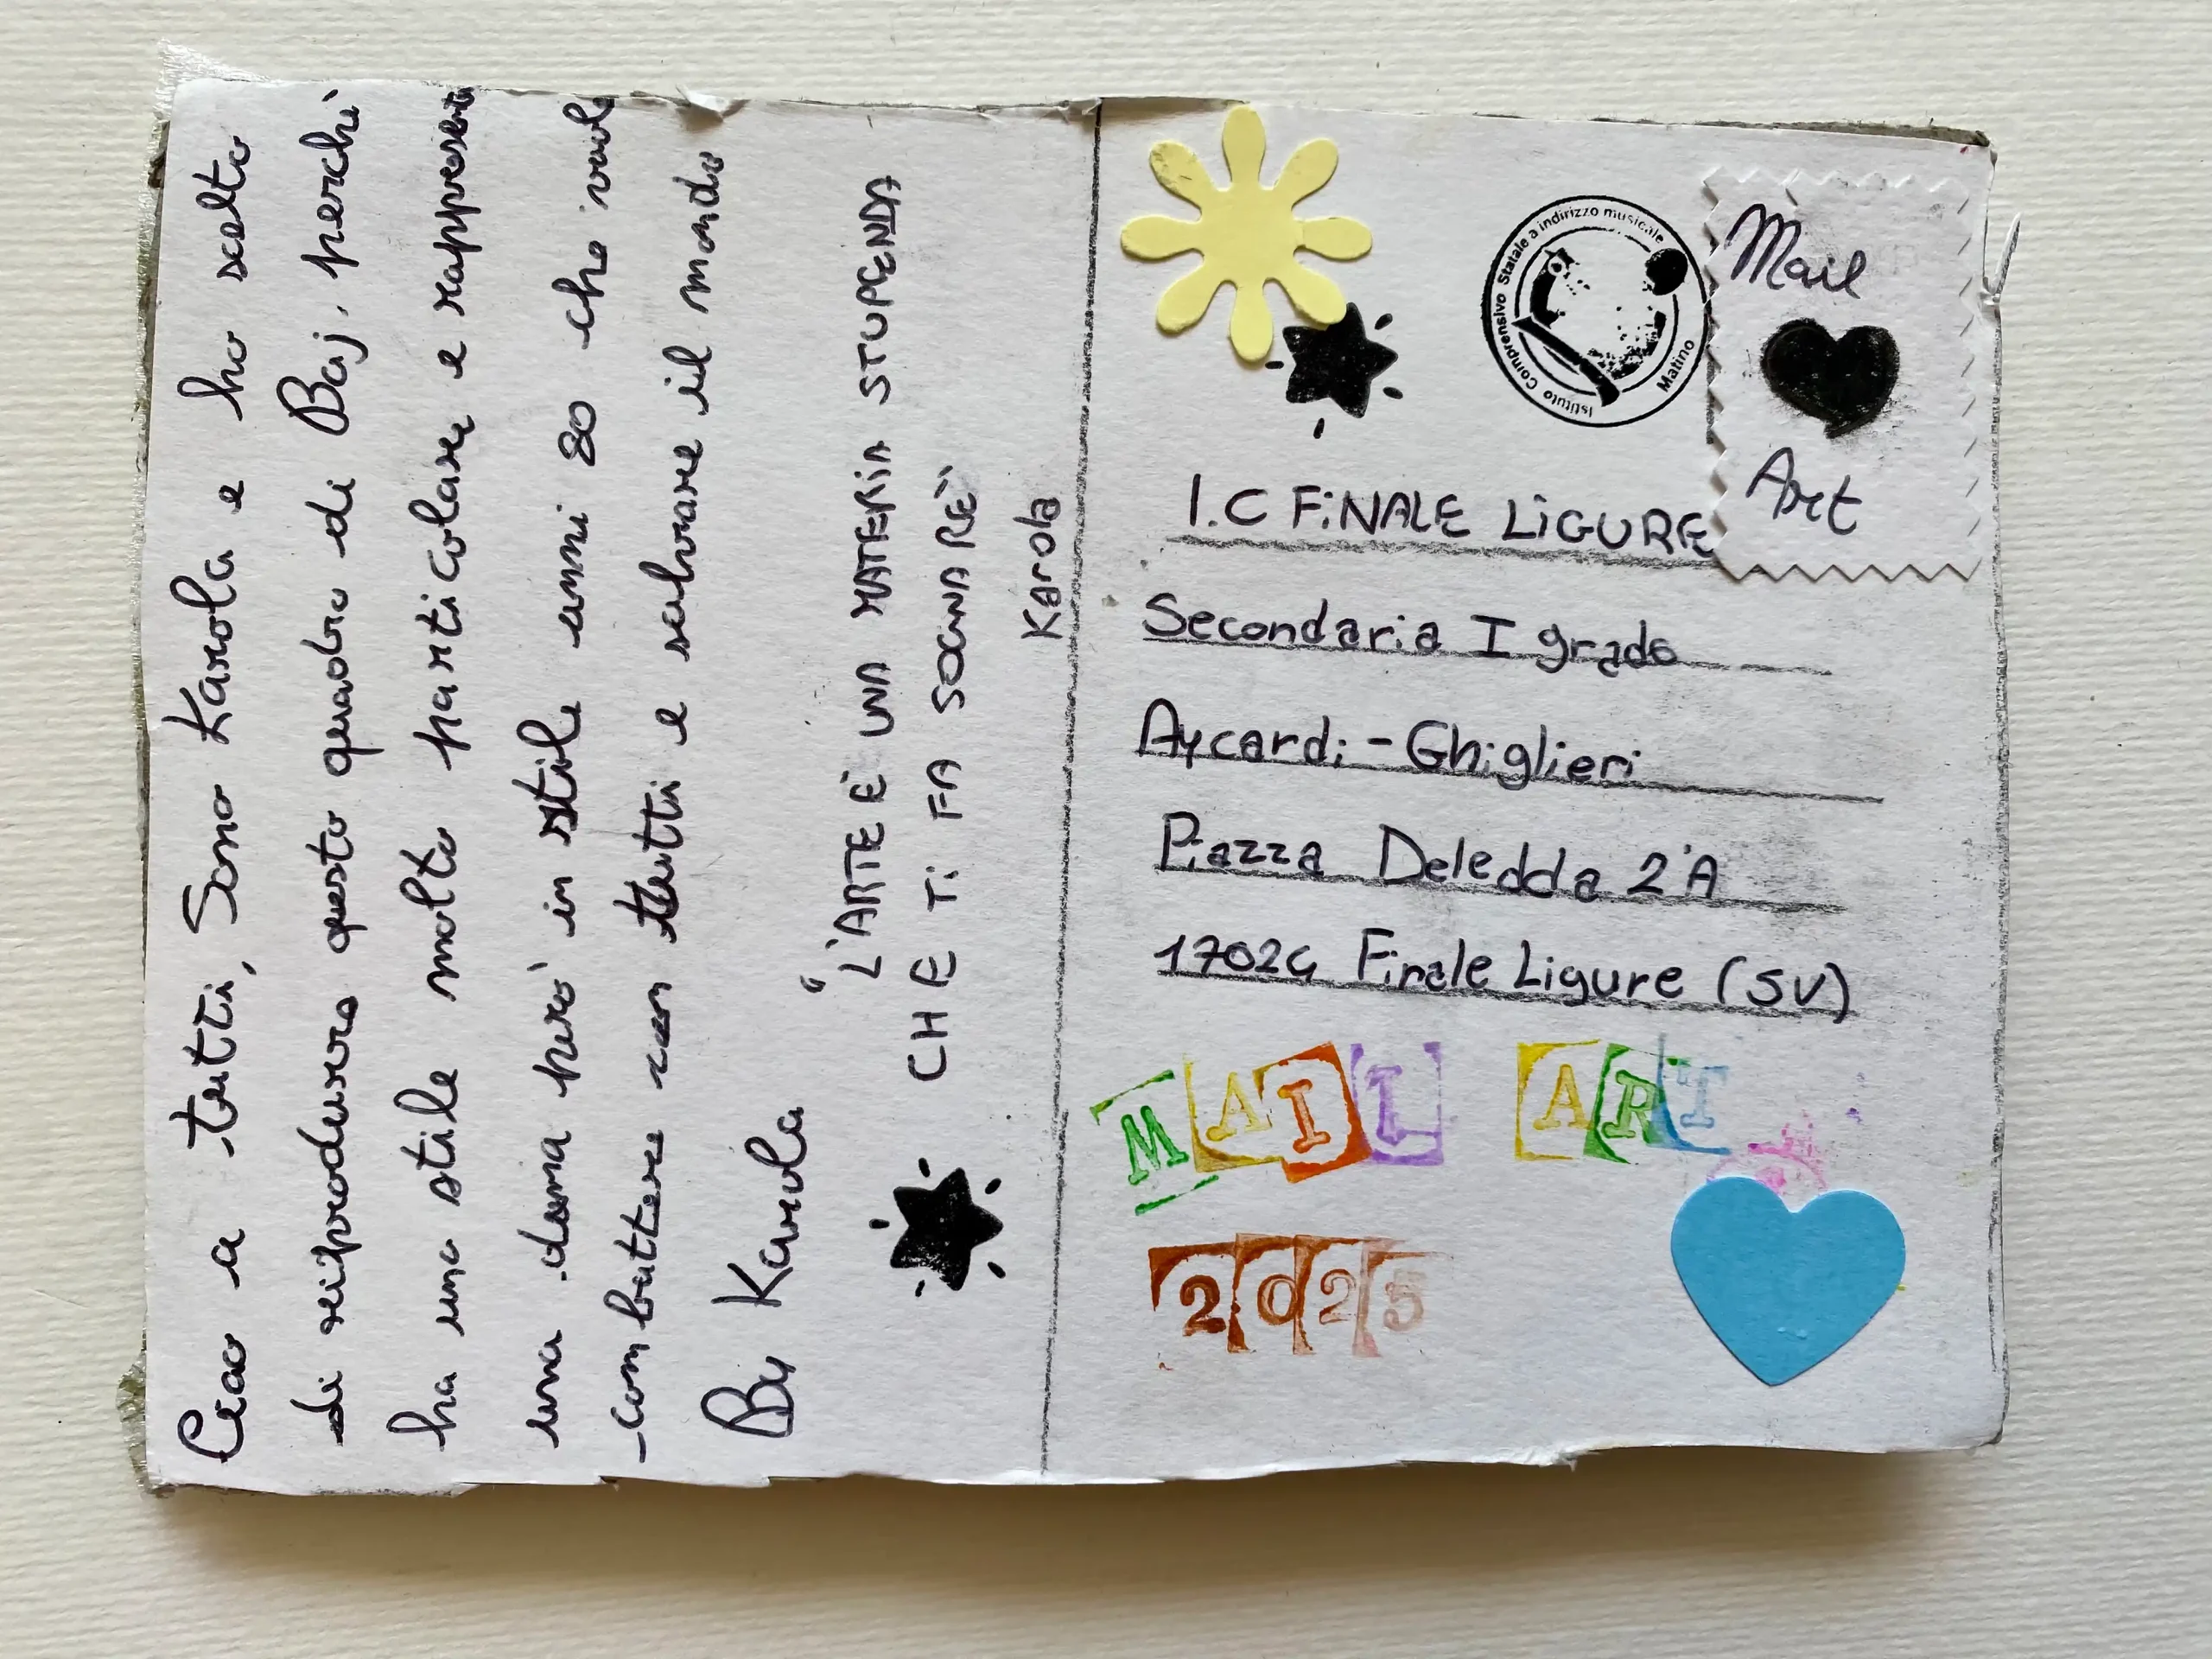 Ciao a tutti, Sono Karola e ho scelto
di riprodurre questo quadro di Baj, perchè
ha uno stile molto particolare e rappresenta
una donna però in stile anni 80 che vuole
combattere con tutti e salvare il mondo
By Karola
"L'ARTE È UNA MATERIA STUPENDA
CHE TI FA SOGNARE"
Karola
Istituto Comprensivo Statale a indirizzo musicale
Matino
Mail
Art
I.C FiNALE LiGURE
Secondaria I grado
Aycardi-Ghiglieri
Piazza Deledda 2'A
17024 Finale Ligure (SV)
MAIL ART
2025